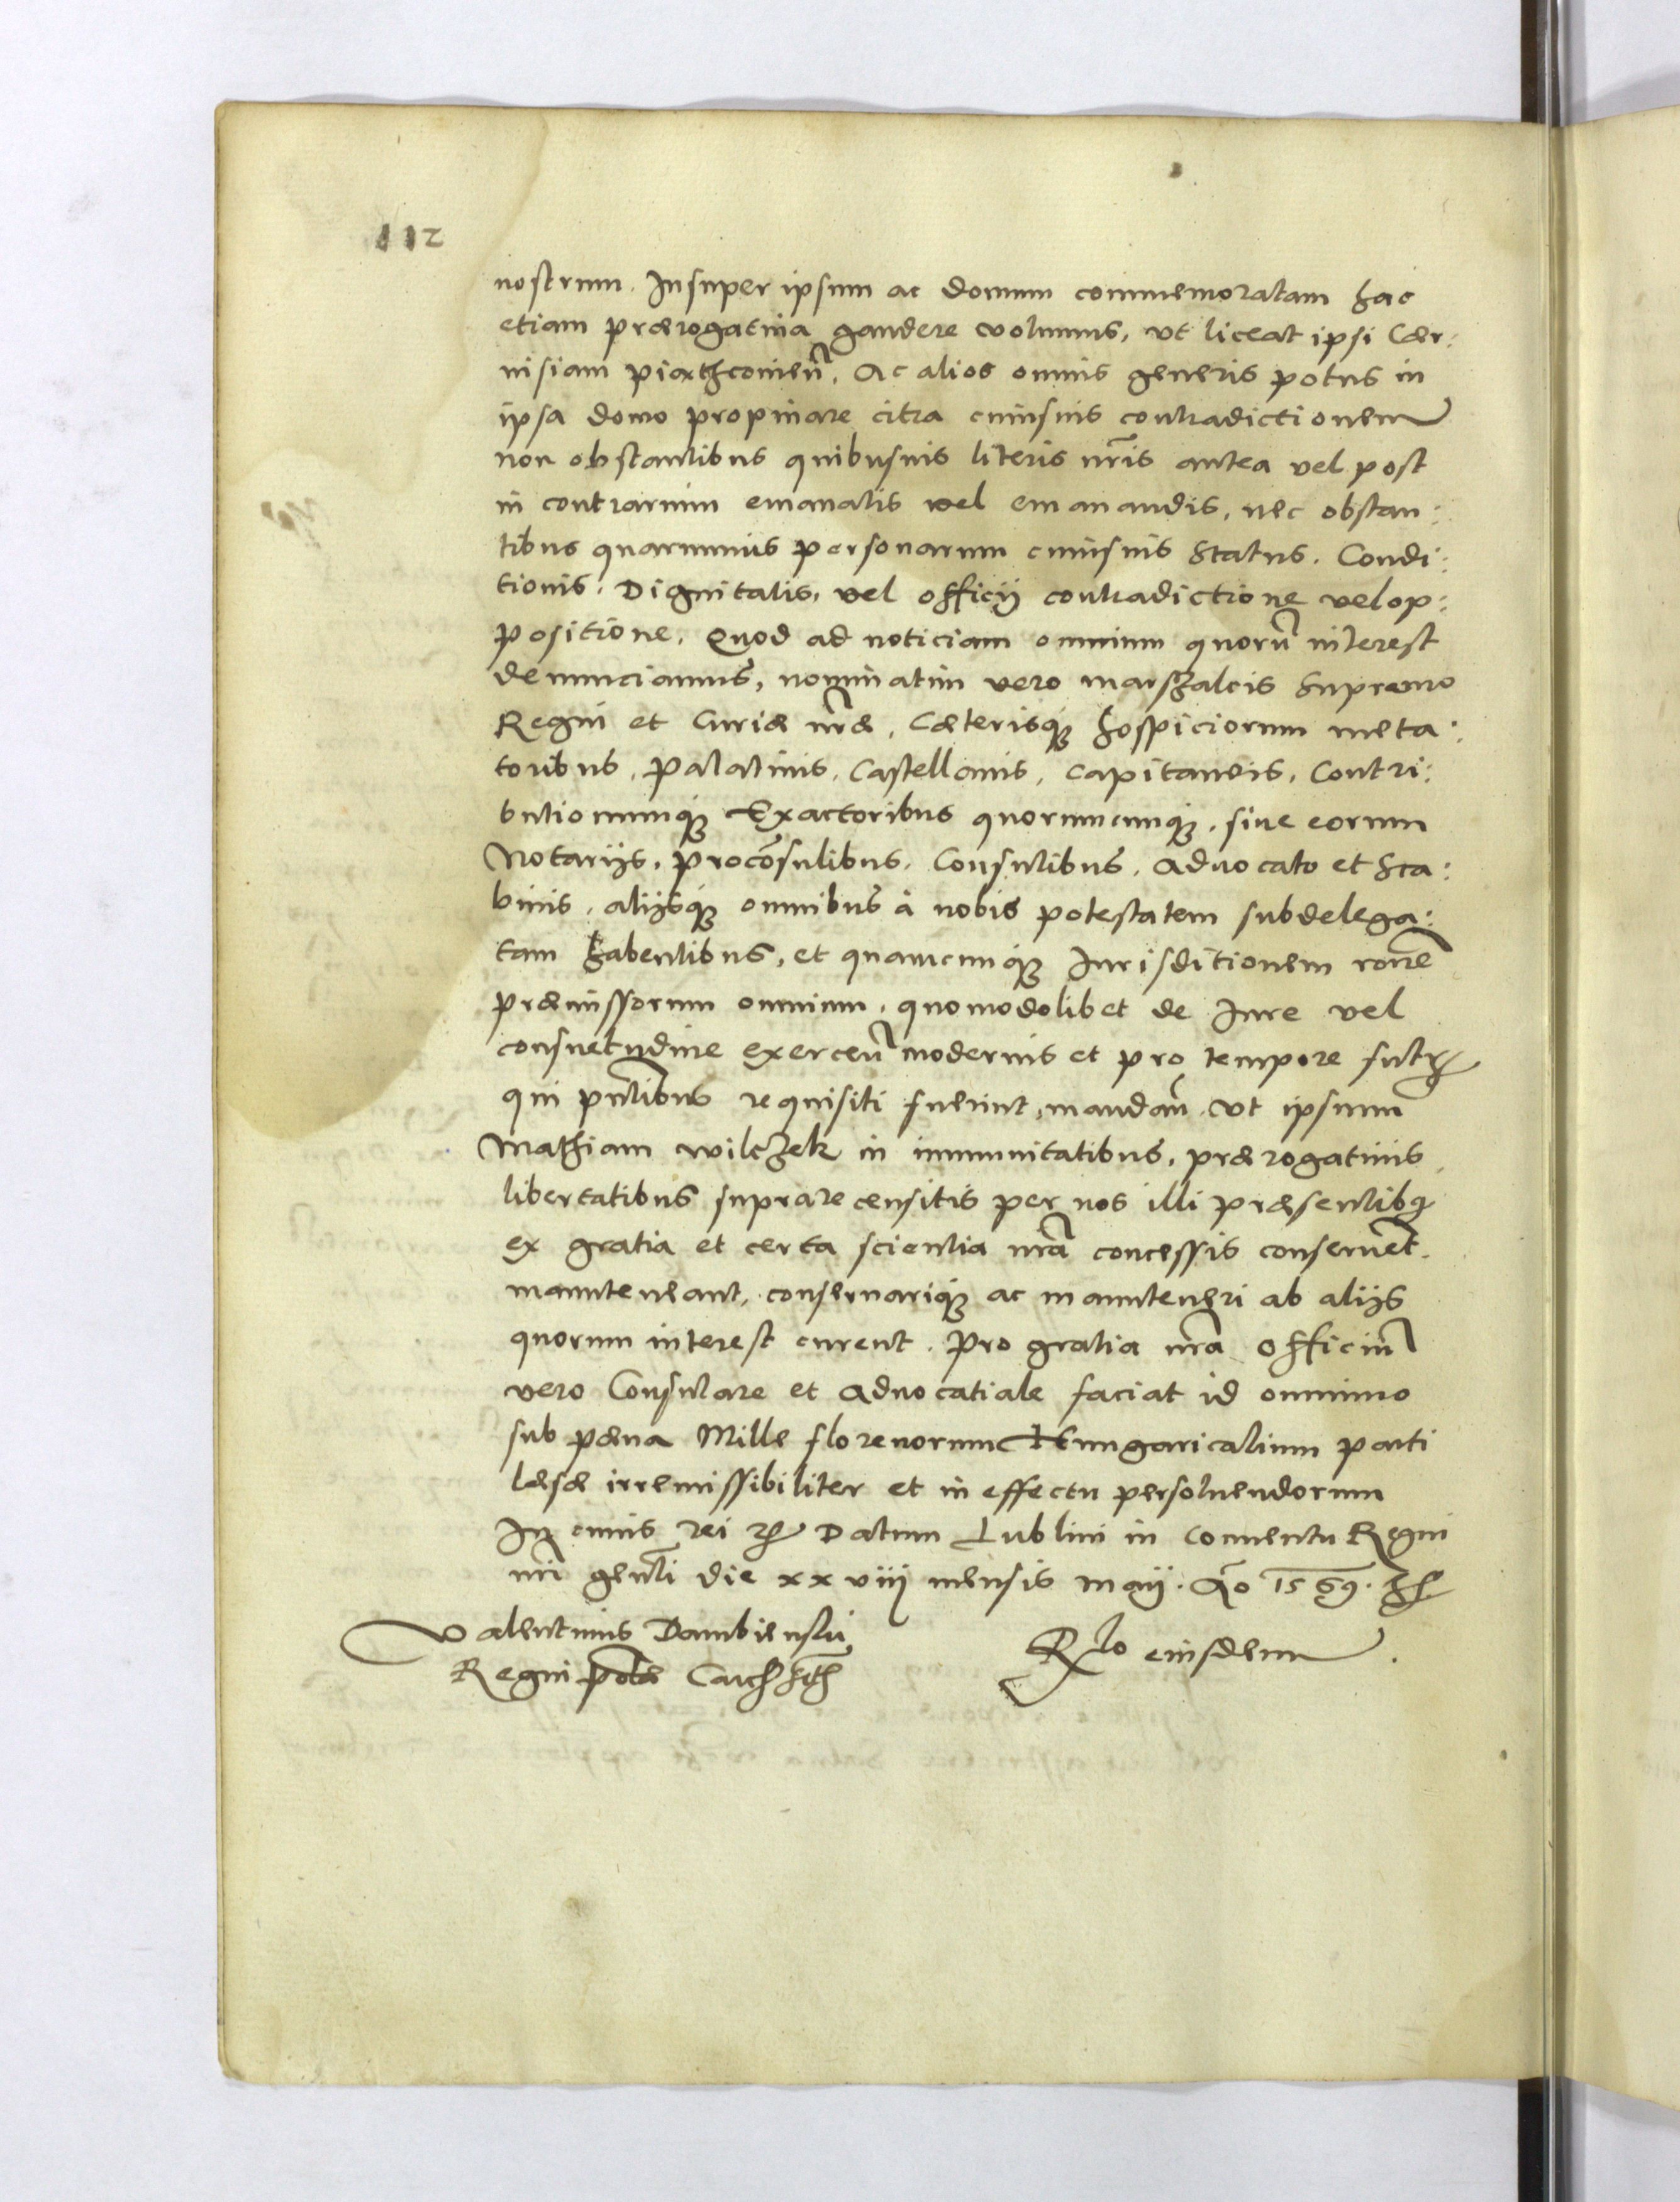 112
nostrum. Insuper ipsum ac domum commemoratam hac
etiam prærogatiua gaudere volumus, vt liceat ipsi Cær:
uisiam piathconien̄, Ac alios omnis generis potus in
ipsa domo propinare citra cuiusuis contradictionem
non obstantibus quibusuis literis nr̄is antea vel post
in contrarium emanatis vel emanandis, nec obstan:
tibus quarumuis personarum cuiusuis Status. Condi:
tionis. Dignitatis. vel officij contradictione vel op:
positione. Quod ad noticiam omnium quorū interest
denunciamus, nominatim vero marshalcis Supremo
Regni et Curiæ nr̄æ, Cæterisq₃ hospiciorum meta:
toribus, Palatinis, Castellanis, Capitaneis, Contri:
butionumq₃ Exactoribus quorumcunq₃, siue eorum
Notarijs, procōsulibus, Consulibus, Aduocato et Sca:
binis, alijsq₃ omnibus à nobis potestatem subdelega:
tam habentibus, et quamcunq₃ Jurisditionem ron̄e
præmissorum omnium, quomodolibet de Jure vel
consuetudine exercen̄ modernis et pro tempore futur̄
qui pn̄tibus requisiti fuerint, mandam̄ vt ipsum
Mathiam Wilczek in immunitatibus, prærogatiuis
libertatibus supra recensitis per nos illi præsentibꝰ
ex gratia et certa scientia nr̄a concessis conseruēt
manuteneant, conseruariq₃ ac manuteneri ab alijs
quorum interest curent. Pro gratia nr̄a Officiū
vero Consulare et Aduocatiale faciat id omnino
sub pæna Mille florenorum Hungaricalium parti
læsæ irremissibiliter et in effectu persoluendorum
In cuius rei ꝛc̄ Datum Lublini in Conuentu Regni
nr̄i gen̄li die xxviij mensis Maij. Ao 1569.
Valentinus Dambienski
Regni Polæ Canc̄ sstͫ
Rlo eiusdem.